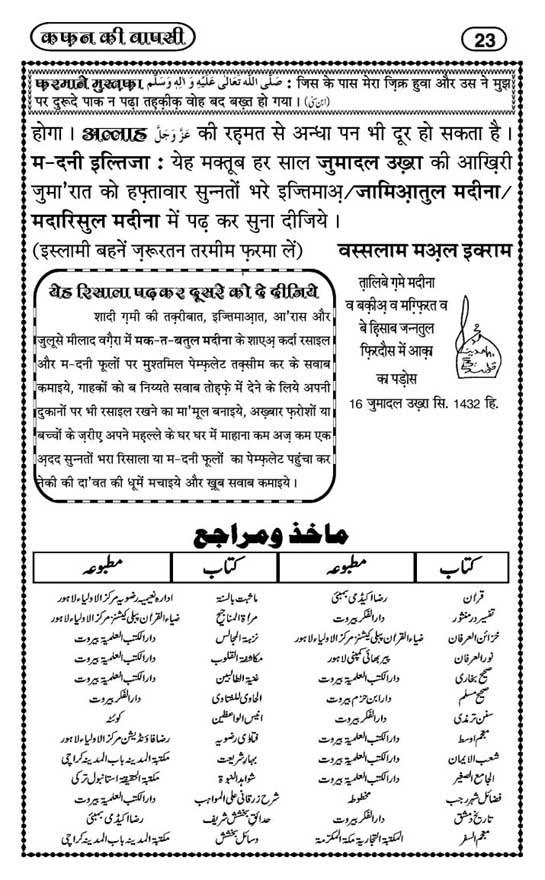 कफ़न की वापसी
23
फ़रमाने मुस्तफ़ा صَلَّى اللّٰهُ تَعَالٰى عَلَيْهِ وَاٰلِهٖ وَسَلَّم : जिस के पास मेरा ज़िक्र हुवा और उस ने मुझ
पर दुरूदे पाक न पढ़ा तहक़ीक़ वोह बद बख़्त हो गया। (ابن سنی)
होगा। अल्लाह عَزَّوَجَلَّ की रहमत से अन्धा पन भी दूर हो सकता है।
म-दनी इल्तिजा : येह मक्तूब हर साल जुमादल उख़्रा की आख़िरी
जुमा'रात को हफ़्तावार सुन्नतों भरे इज्तिमाअ़/जामिअ़ातुल मदीना/
मदारिसुल मदीना में पढ़ कर सुना दीजिये।
(इस्लामी बहनें ज़रूरतन तरमीम फ़रमा लें) वस्सलाम मअ़ल इक्राम
येह रिसाला पढ़ कर दूसरे को दे दीजिये
शादी ग़मी की तक़्रीबात, इज्तिमाअ़ात, आ'रास और
जुलूसे मीलाद वग़ैरा में मक-त-बतुल मदीना के शाएअ़ कर्दा रसाइल
और म-दनी फूलों पर मुश्तमिल पेम्फ़लेट तक़्सीम कर के सवाब
कमाइये, गाहकों को ब निय्यते सवाब तोह़फ़े में देने के लिये अपनी
दुकानों पर भी रसाइल रखने का मा'मूल बनाइये, अख़्बार फ़रोशों या
बच्चों के ज़रीए अपने महल्ले के घर घर में माहाना कम अज़ कम एक
अ़दद सुन्नतों भरा रिसाला या म-दनी फूलों का पेम्फ़लेट पहुंचा कर
नेकी की दा'वत की धूमें मचाइये और ख़ूब सवाब कमाइये।
तालिबे ग़मे मदीना
व बक़ीअ़ व मग़्फ़िरत व
बे हिसाब जन्नतुल
फ़िरदौस में आक़ा
का पड़ोस
16 जुमादल उख़्रा सि. 1432 हि.
ماخذ و مراجع
کتاب مطبوعہ کتاب مطبوعہ
قران رضا اکیڈمی بمبئی ماثبت بالسنۃ ادارہ نعیمیہ رضویہ مرکز الاولیاء لاہور
تفسیر در منثور دارالفکر بیروت مراۃ المناجیح ضیاء القران پبلی کیشنز مرکز الاولیاء لاہور
خزائن العرفان ضیاء القران پبلی کیشنز مرکز الاولیاء لاہور نزہۃ المجالس دارالکتب العلمیۃ بیروت
نور العرفان پیر بھائی کمپنی لاہور مکاشفۃ القلوب دارالکتب العلمیۃ بیروت
صحیح بخاری دارالکتب العلمیۃ بیروت غنیۃ الطالبین دارالکتب العلمیۃ بیروت
صحیح مسلم دار ابن حزم بیروت الحاوی للفتاوی دارالفکر بیروت
سنن ترمذی دارالفکر بیروت انیس الواعظین کوئٹہ
معجم اوسط دارالکتب العلمیۃ بیروت فتاوٰی رضویہ رضا فاؤنڈیشن مرکز الاولیاء لاہور
شعب الایمان دارالکتب العلمیۃ بیروت بہار شریعت مکتبۃ المدینہ باب المدینہ کراچی
الجامع الصغیر دارالکتب العلمیۃ بیروت شواہد النبوۃ مکتبۃ الحقیقۃ استانبول ترکی
فضائل شہر رجب مخطوطہ شرح زرقانی علی المواہب دارالکتب العلمیۃ بیروت
تاریخ دمشق دارالفکر بیروت حدائق بخشش شریف رضا اکیڈمی بمبئی
معجم السفر المکتبۃ التجاریۃ مکۃ المکرّمۃ وسائل بخشش مکتبۃ المدینہ باب المدینہ کراچی